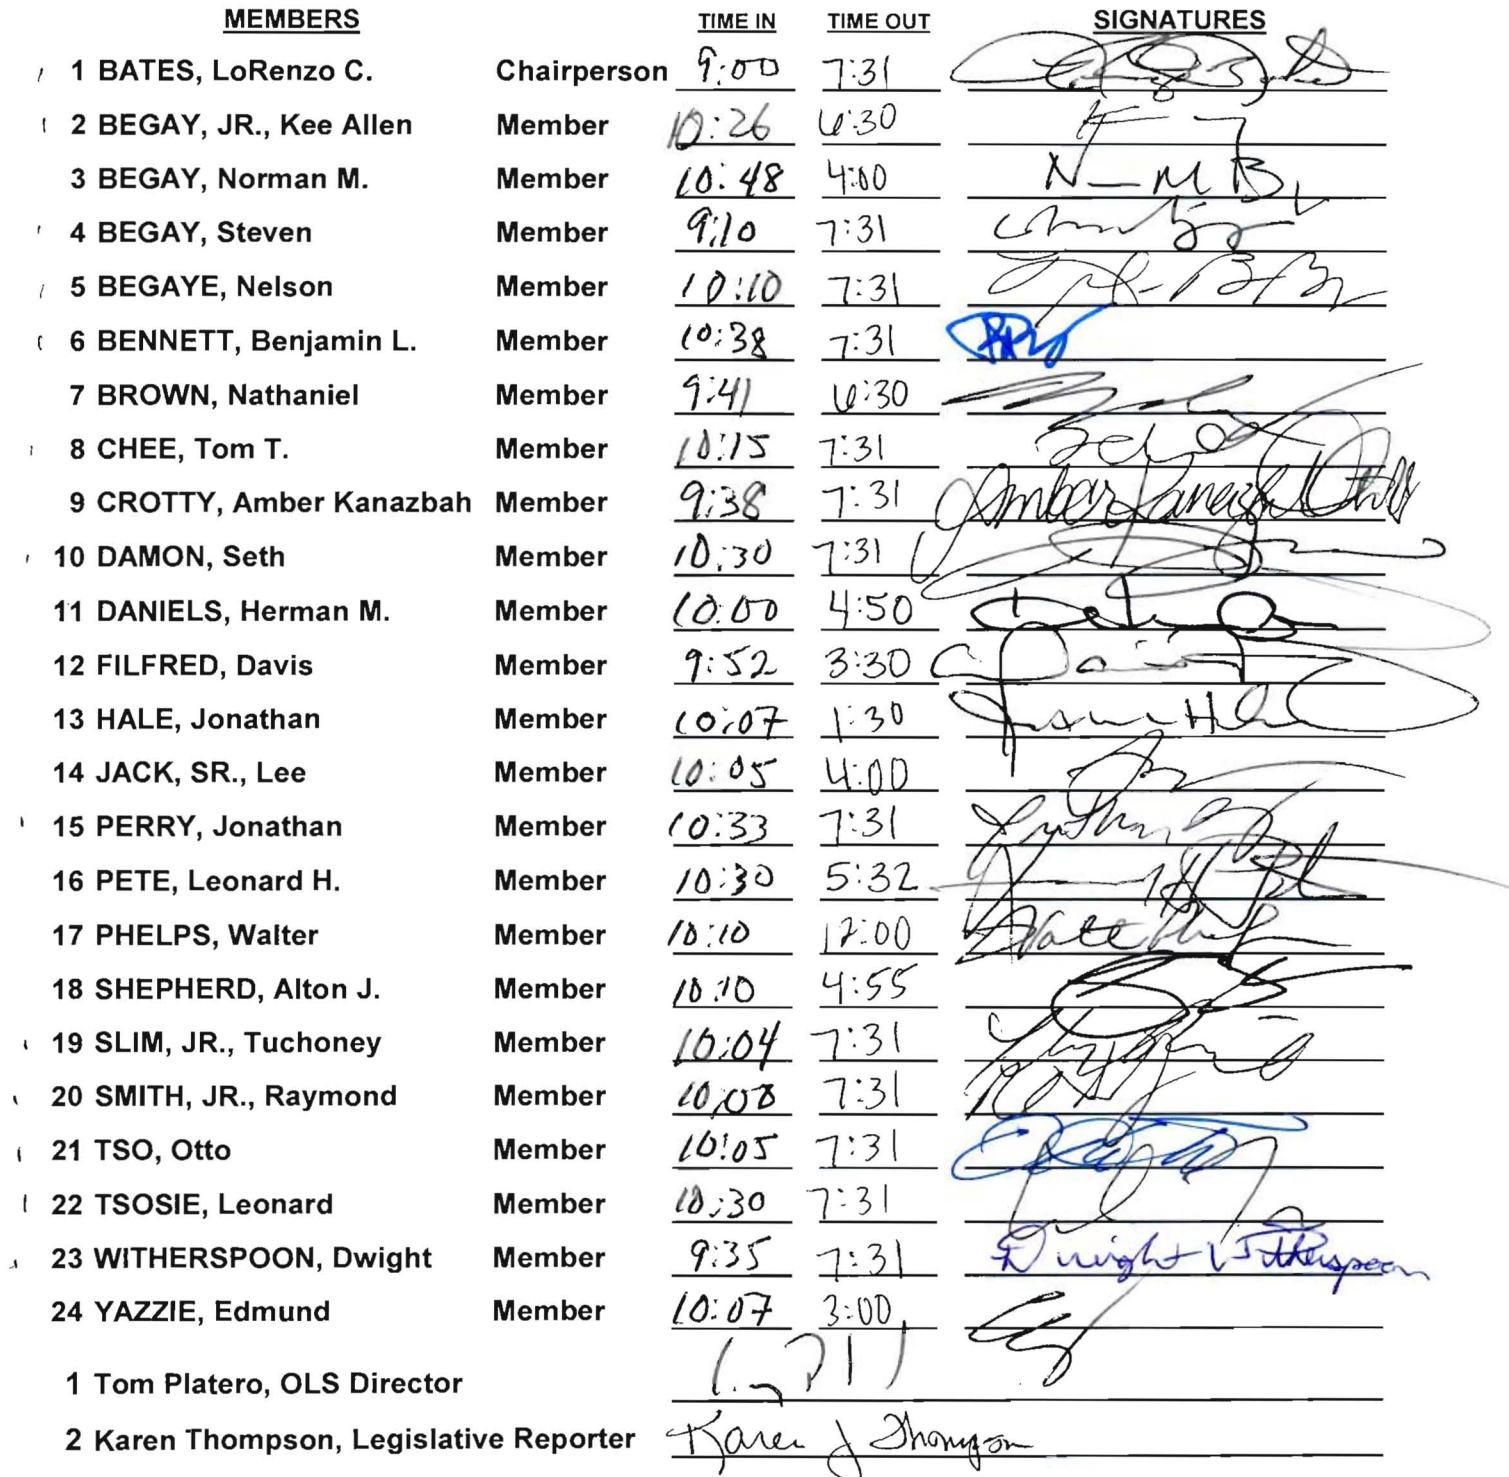 MEMBERS TIME IN TIME OUT SIGNATURES
1 BATES, LoRenzo C. Chairperson 9:00 7:31
2 BEGAY, JR., Kee Allen Member 10:26 6:30
3 BEGAY, Norman M. Member 10:48 4:00 N-MB
4 BEGAY, Steven Member 9:10 7:31
5 BEGAYE, Nelson Member 10:10 7:31
6 BENNETT, Benjamin L. Member 10:38 7:31
7 BROWN, Nathaniel Member 9:41 6:30
8 CHEE, Tom T. Member 10:15 7:31
9 CROTTY, Amber Kanazbah Member 9:38 7:31 Amber Kanazbah Crotty
10 DAMON, Seth Member 10:30 7:31
11 DANIELS, Herman M. Member 10:00 4:50
12 FILFRED, Davis Member 9:52 3:30
13 HALE, Jonathan Member 10:07 1:30
14 JACK, SR., Lee Member 10:05 4:00
15 PERRY, Jonathan Member 10:33 7:31
16 PETE, Leonard H. Member 10:30 5:32
17 PHELPS, Walter Member 10:10
18 SHEPHERD, Alton J. Member 10:10 4:55
19 SLIM, JR., Tuchoney Member 10:04 7:31
20 SMITH, JR., Raymond Member 7:31
21 TSO, Otto Member 10:05 7:31
22 TSOSIE, Leonard Member 10:30 7:31
23 WITHERSPOON, Dwight Member 9:35 7:31 Dwight Witherspoon
24 YAZZIE, Edmund Member 10:07 3:00
1 Tom Platero, OLS Director
2 Karen Thompson, Legislative Reporter Karen J Thompson